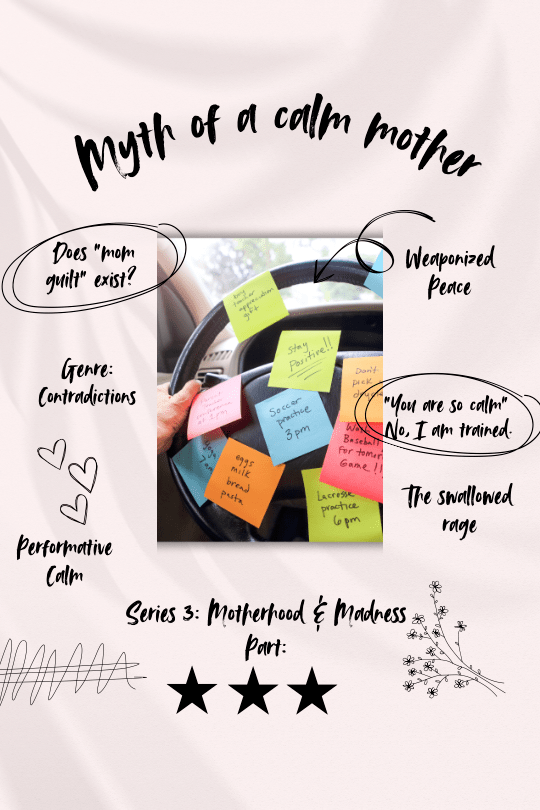 Myth of a calm mother
Does "mom
guilt" exist?
Weaponized
Peace
Genre:
Contradictions
"You are so calm"
No, I am trained.
The swallowed
rage
Performative
Calm
appreciation
gift
Stay
Positive!!
Don't
pick
Soccer
practice
3pm
6 pm
eggs
milk
bread
pasta
Baseball
for
Game!!
Lacrosse
practice
6pm
Series 3: Motherhood & Madness
Part: